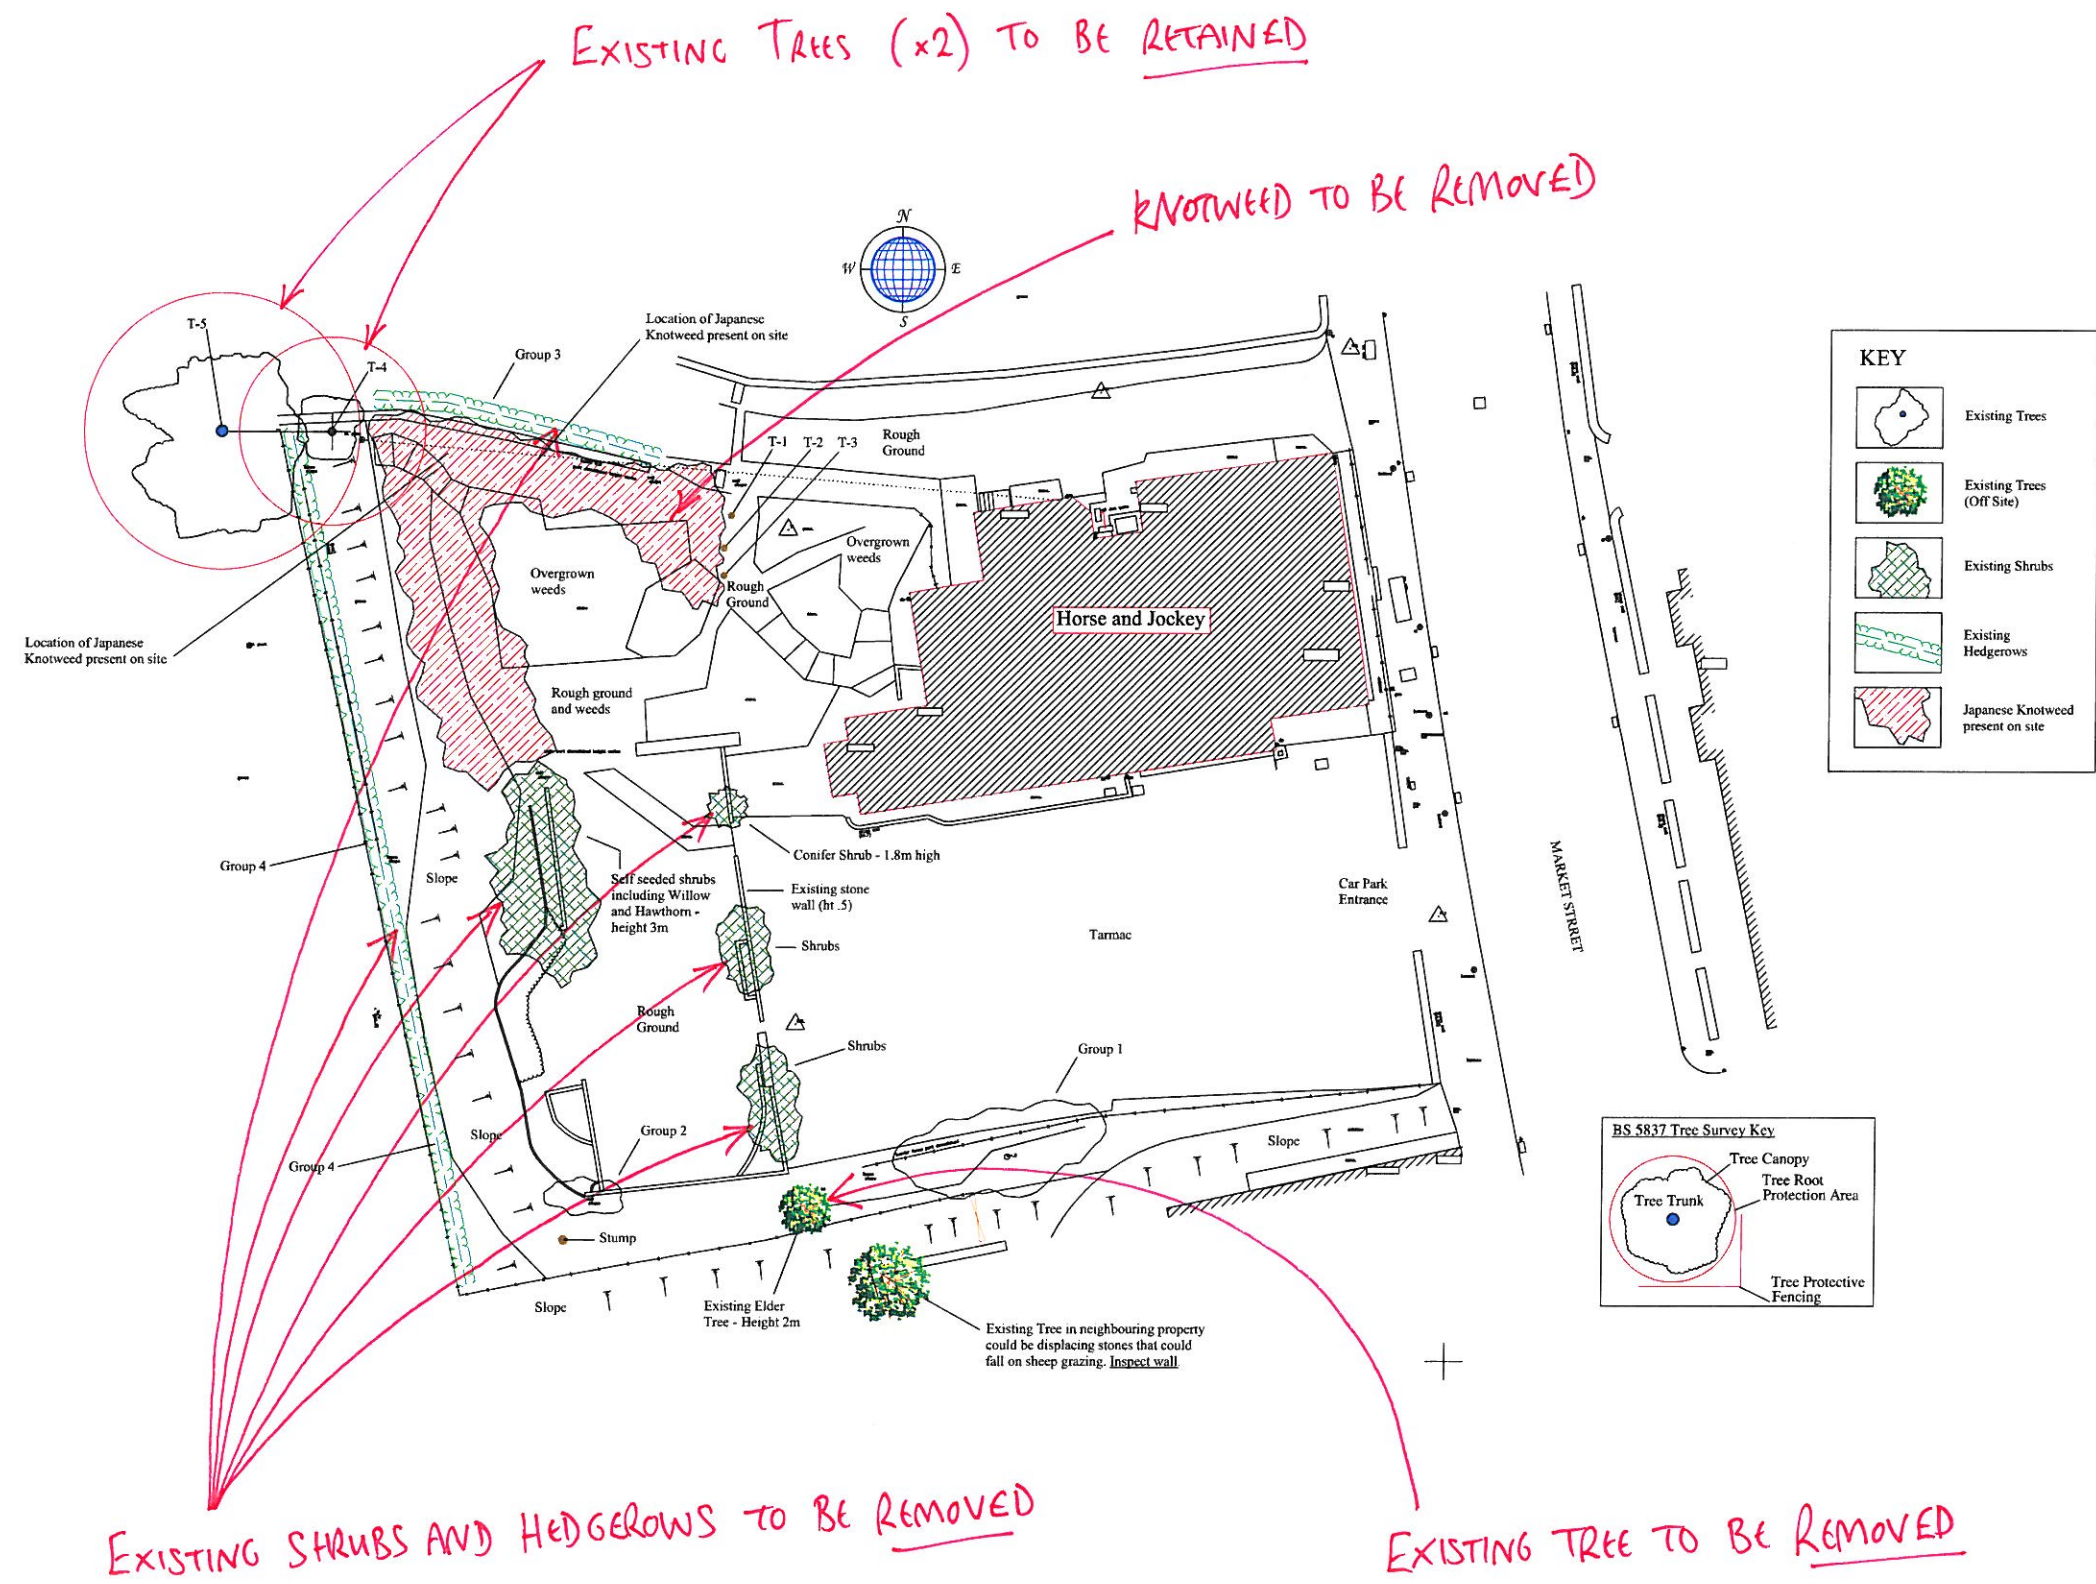 EXISTING TREES (x2) TO BE RETAINED
KNOTWEED TO BE REMOVED
N
W
E
S
T-5
T-4
Group 3
Location of Japanese
Knotweed present on site
T-1
T-2
T-3
Rough
Ground
Overgrown
weeds
Overgrown
weeds
Rough
Ground
Horse and Jockey
Location of Japanese
Knotweed present on site
Rough ground
and weeds
Group 4
Slope
Self seeded shrubs
including Willow
and Hawthorn -
height 3m
Conifer Shrub - 1.8m high
Existing stone
wall (ht .5)
Shrubs
Tarmac
Car Park
Entrance
MARKET STRRET
Rough
Ground
Shrubs
Group 1
Slope
Group 2
Slope
Group 4
Stump
Slope
Existing Elder
Tree - Height 2m
Existing Tree in neighbouring property
could be displacing stones that could
fall on sheep grazing. Inspect wall.
KEY
Existing Trees
Existing Trees
(Off Site)
Existing Shrubs
Existing
Hedgerows
Japanese Knotweed
present on site
BS 5837 Tree Survey Key
Tree Canopy
Tree Root
Protection Area
Tree Trunk
Tree Protective
Fencing
EXISTING SHRUBS AND HEDGEROWS TO BE REMOVED
EXISTING TREE TO BE REMOVED